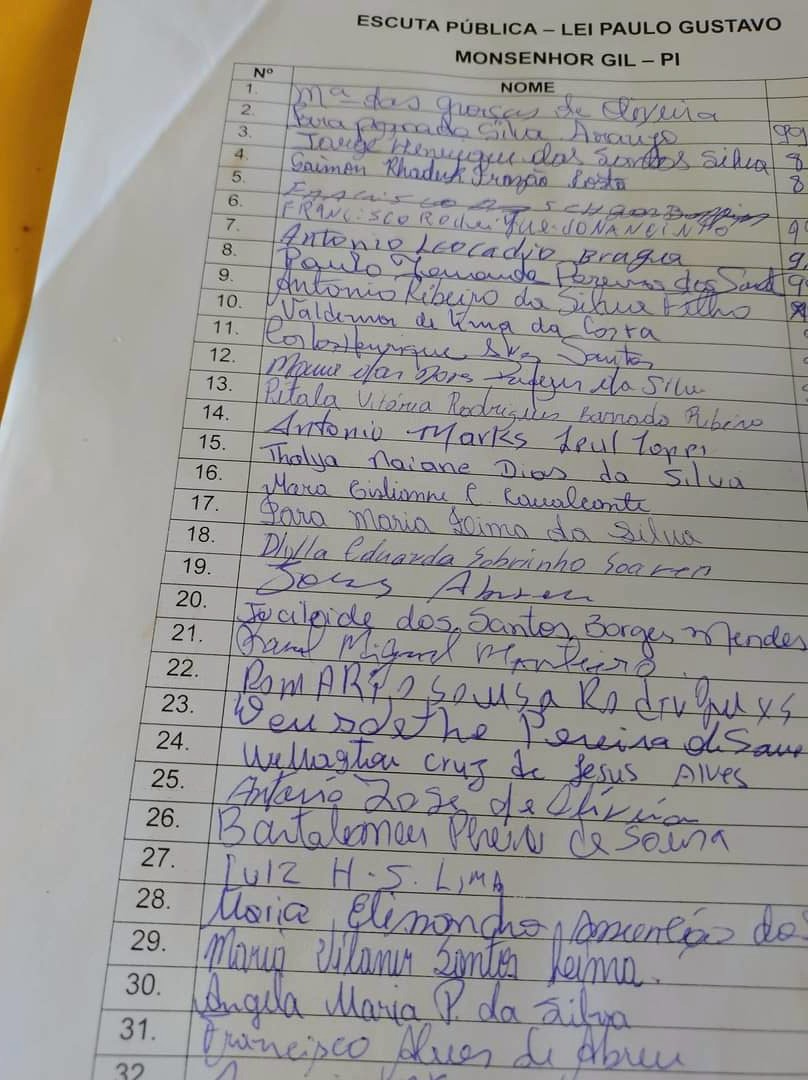 ESCUTA PÚBLICA – LEI PAULO GUSTAVO
MONSENHOR GIL – PI
Nº NOME
1. Mª das graças de Oliveira
2. Silva Araujo 99
3. Jorge Henrique dos Santos Silva 8
4. Saimon Rhaduk Frazão Costa 8
5.
6. FRANCISCO RODRIGUE DO NASCINTO 9
7. Antonio Leocadio Bragua 9
8. Paulo Fernando Pereira dos Sant 9
9. Antonio Ribeiro da Silva Filho
10. Valdemar de Lima da Costa
11. Carlos Henrique Silva Santos
12. das Dores da Silva
13. Pitala Vitória Rodrigues Barrado Ribeiro
14. Antonio Marks Leul Lopes
15. Thalya Naiane Dias da Silva
16. Mara Gislianne C. Cavalcante
17. Sara Maria Lima da Silva
18. Dhylla Eduarda Sobrinho Soares
19. Abreu
20. Jocileide dos Santos Borges Mendes
21. Miguel Monteiro
22. Romário Sousa Rodrigues
23. Pereira de
24. Wellington Cruz de Jesus Alves
25. Antonio Jose de Oliveira
26. Bartolomeu Pereira de Sousa
27. Luiz H. S. Lima
28. Maria Assunção do
29. Maria Vilanir Santos Leima.
30. Angela Maria P. da Silva
31. Francisco Alves de Abreu
32